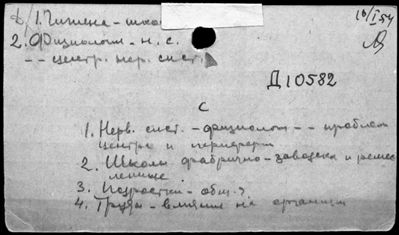 1. Гигиена - шко
18/I 54
2. Физиология - н. с.
-- центр. нер. сист.
Д10582
С
1. Нерв. сист. - физиология -- проблем
центра и периферии
2. Школы фабрично-заводск и ремес
ленные
3. Подростки - общ.?
4. Труда - влияние на организм